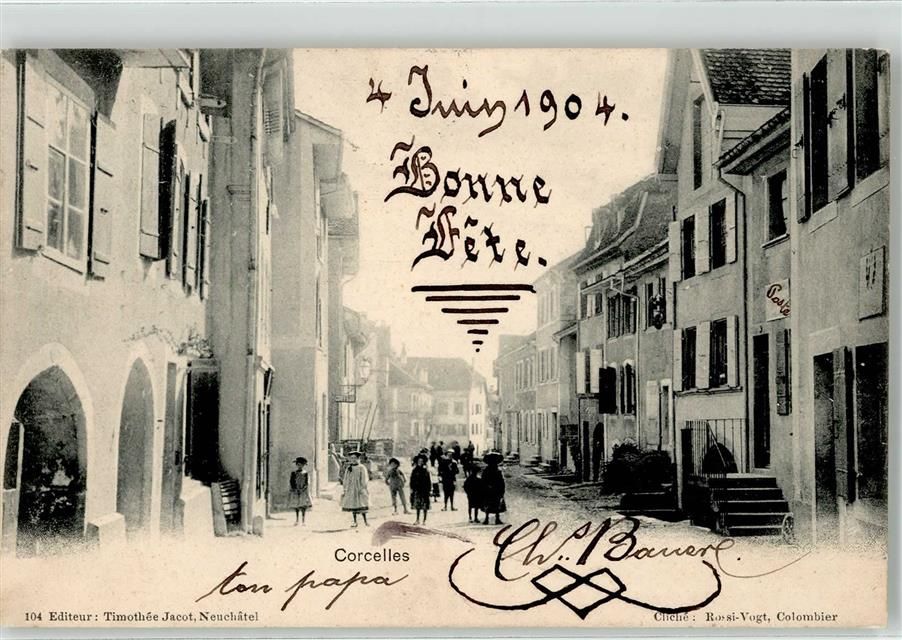 4 Juin 1904.
Bonne
Fête.
Poste
Corcelles
Chs. Bauer.
ton papa
104 Editeur: Timothée Jacot, Neuchâtel
Cliché: Rossi-Vogt, Colombier